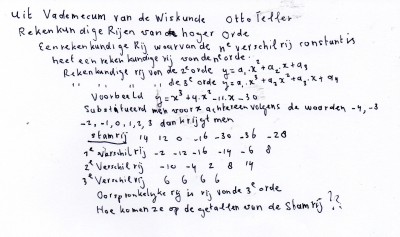 Uit Vademecum van de Wiskunde Otto Teller
Rekenkundige Rijen van de hoger Orde
Een rekenkundige Rij waarvan de nᵉ verschilrij constant is
heet een rekenkundige rij van de nᵉ orde.
Rekenkundige rij van de 2ᵉ orde y = a₁x² + a₂x + a₃
" " " de 3ᵉ orde y = a₁x³ + a₂x² + a₃x + a₄
Voorbeeld y = x³ + 4x² - 11x - 30
Substitueert men voor x achtereenvolgens de waarden -4, -3
-2, -1, 0, 1, 2, 3 dan krijgt men
stamrij 14 12 0 -16 -30 -36 -28
1ᵉ verschilrij -2 -12 -16 -14 -6 8
2ᵉ Verschilrij -10 -4 2 8 14
3ᵉ Verschilrij 6 6 6 6
Oorspronkelijke rij is rij van de 3ᵉ orde
Hoe komen ze op de getallen van de Stamrij??